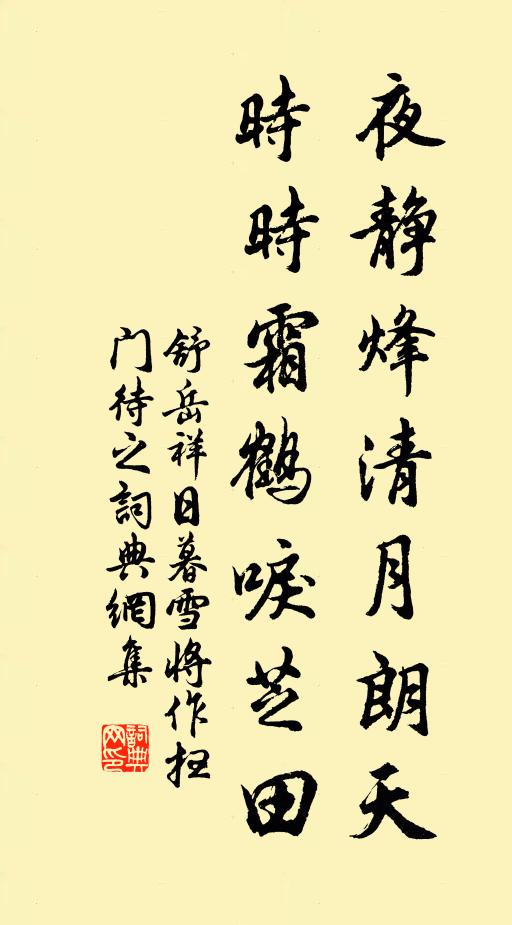 夜靜烽清月朗天
時時霜鶴唳芝田
舒岳祥日暮雪將作扭
门待之詞典網集
詞典网印